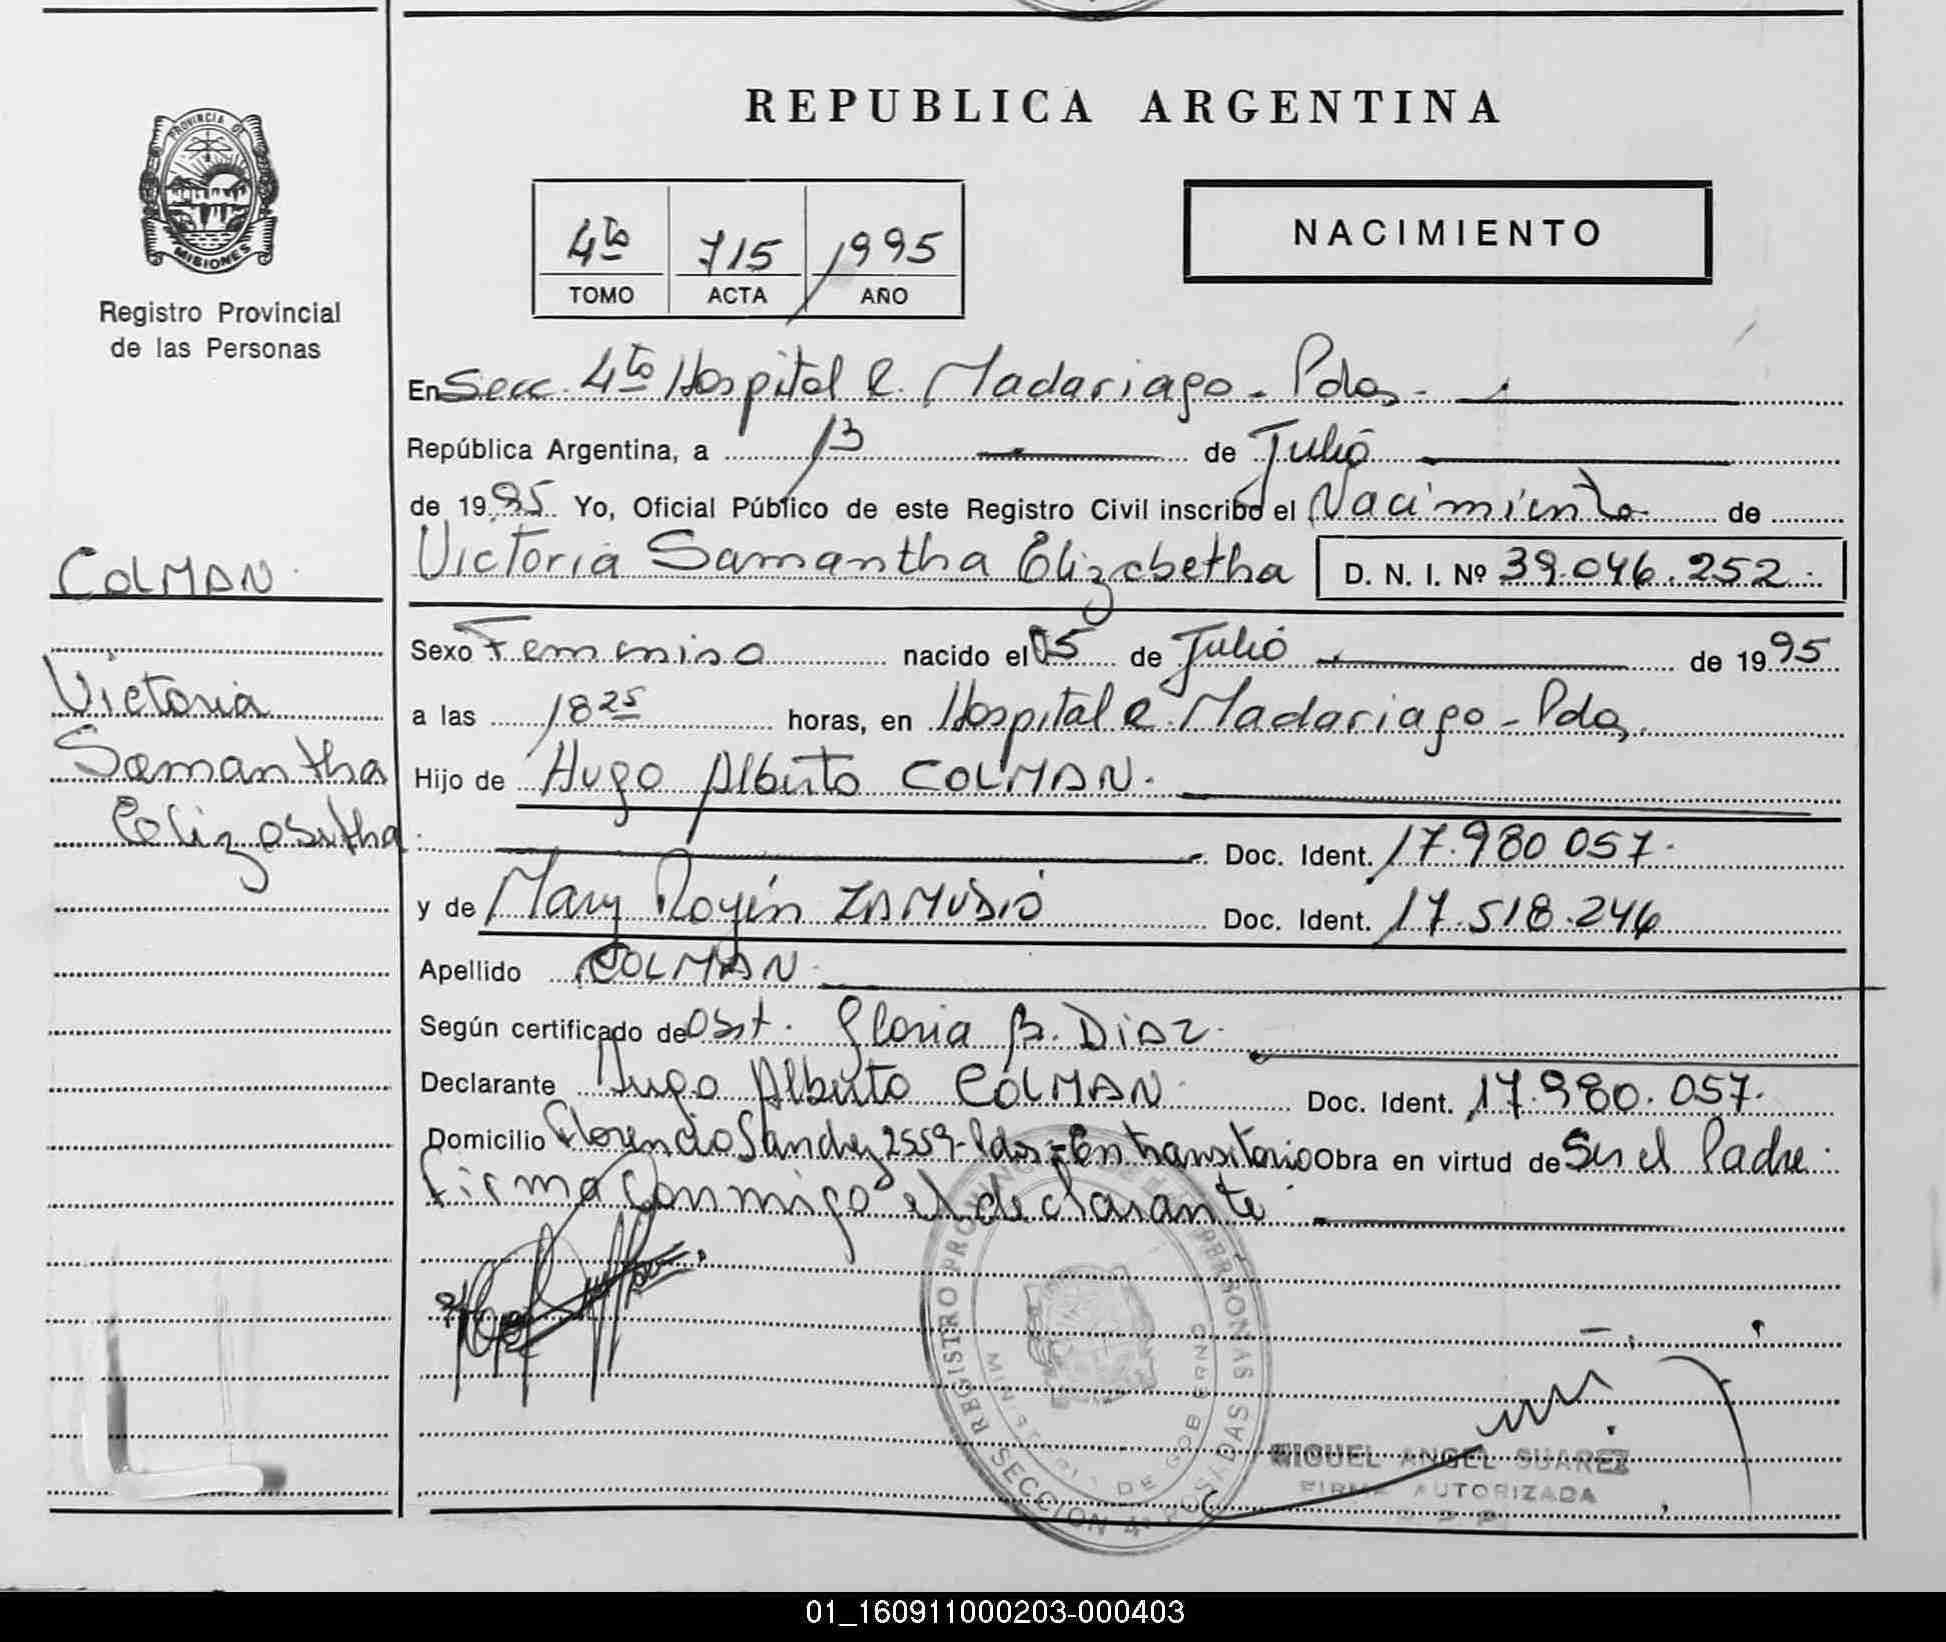 REPUBLICA ARGENTINA
PROVINCIA DE
MISIONES
Registro Provincial
de las Personas
NACIMIENTO
4to 715 1995
TOMO ACTA AÑO
En Secc. 4to Hospital R. Madariaga - Pdas -
República Argentina, a 13 de Julio
de 1995 Yo, Oficial Público de este Registro Civil inscribo el Nacimiento de
Victoria Samantha Elizabetha D. N. I. Nº 39.046.252.
COLMAN
Victoria
Samantha
Elizabetha
Sexo Femenino nacido el 05 de Julio de 1995
a las 18 25 horas, en Hospital R. Madariaga - Pdas.
Hijo de Hugo Alberto COLMAN.
Doc. Ident. 17.980 057.
y de Mary ZAMUDIO Doc. Ident. 17.518.246
Apellido COLMAN
Según certificado de Obst. Gloria B. DIAZ.
Declarante Hugo Alberto COLMAN Doc. Ident. 17.980.057.
Domicilio Florencio Sanchez 2559 - Pdas - En transitorio Obra en virtud de Ser el Padre.
Firma Conmigo el declarante
REGISTRO PROVINCIAL DE LAS PERSONAS
MINISTERIO DE GOBIERNO
SECCION 4ª POSADAS
MIGUEL ANGEL SUAREZ
FIRMA AUTORIZADA
01_160911000203-000403